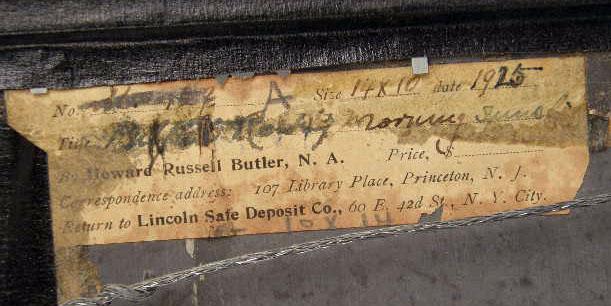 No. A Size 14 X 10 date 1925
Title morning
By Howard Russell Butler, N. A. Price, $
Correspondence address: 107 Library Place, Princeton, N. J.
Return to Lincoln Safe Deposit Co., 60 E. 42d St., N. Y. City.
10 X 14